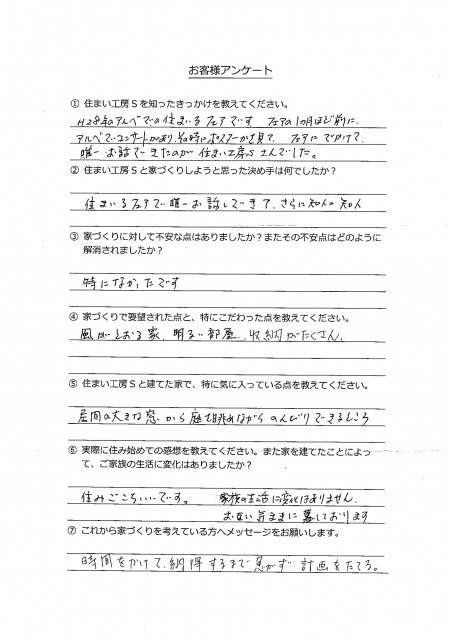 お客様アンケート
① 住まい工房Sを知ったきっかけを教えてください。
H28年のアルベでの住まいるフェアです フェアの1カ月ほど前に、
アルベでコンサートがあり、その時にポスターかを見て、フェアにでかけて、
唯一お話できたのが住まい工房Sさんでした。
② 住まい工房Sと家づくりしようと思った決め手は何でしたか？
住まいるフェアで唯一お話しできて、さらに知人の知人
③ 家づくりに対して不安な点はありましたか？またその不安点はどのように
解消されましたか？
特になかったです
④ 家づくりで要望された点と、特にこだわった点を教えてください。
風がとおる家、明るい部屋、収納がたくさん、
⑤ 住まい工房Sと建てた家で、特に気に入っている点を教えてください。
居間の大きな窓から庭を眺めながらのんびりできるところ
⑥ 実際に住み始めての感想を教えてください。また家を建てたことによっ
て、ご家族の生活に変化はありましたか？
住みごこちいいです。 家族の生活に変化はありません、
お互い気ままに暮しております
⑦ これから家づくりを考えている方へメッセージをお願いします。
時間をかけて、納得するまで急がず計画をたてる。